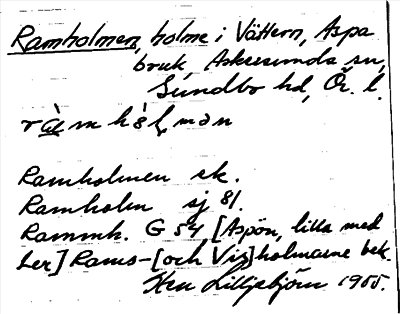 Ramholmen, holme i Vättern, Aspa
bruk, Askersunds sn,
Sundbo hd, Ör. l.
ràm hòlmən
Ramholmen ek.
Ramholm sj 81.
Rammh. G 54 [Aspön, lilla med
Ler] Rams-[och Vis]holmarne bek.
Lilljebjörn 1955.